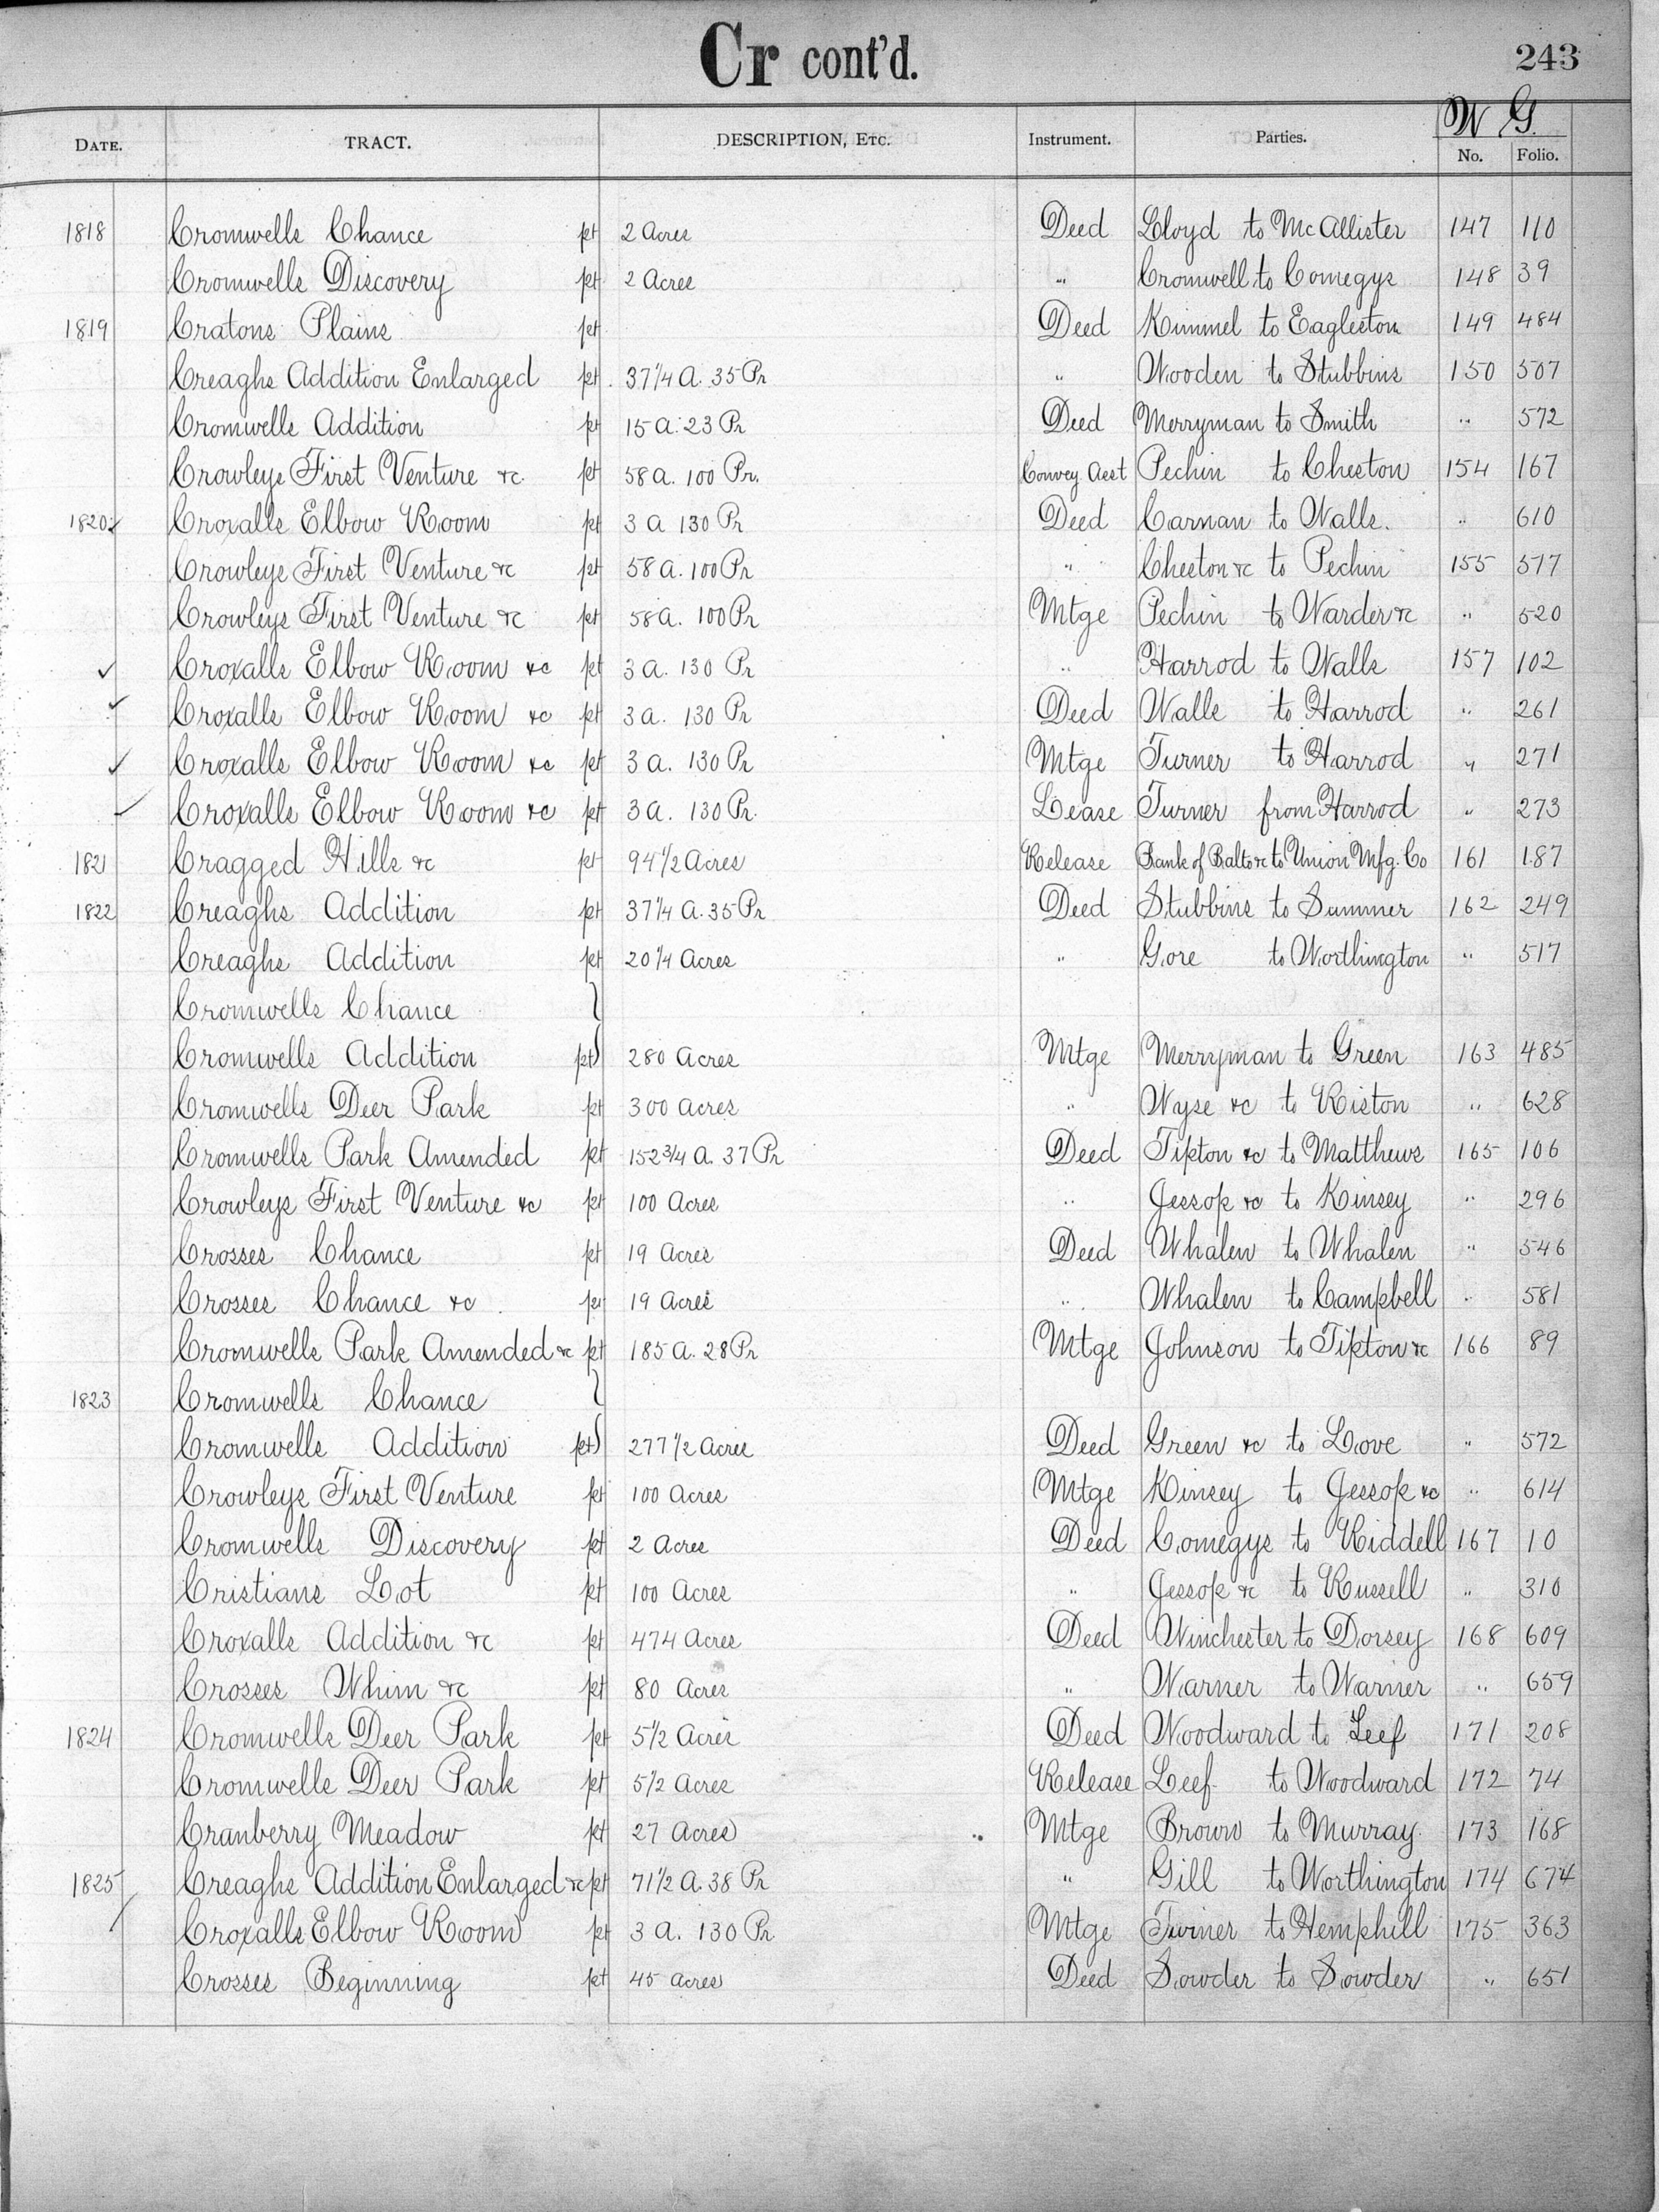 Cr cont'd.
243
W G.
DATE. TRACT. DESCRIPTION, ETC. Instrument. Parties. No. Folio.
1818 Cromwells Chance pt 2 Acres Deed Lloyd to McAllister 147 110
Cromwells Discovery pt 2 Acres " Cromwell to Comegys 148 39
1819 Cratons Plains pt Deed Kimmel to Eagleston 149 484
Creaghs Addition Enlarged pt. 37 1/4 A. 35 Pr " Wooden to Stubbins 150 507
Cromwells Addition pt 15 A. 23 Pr Deed Merryman to Smith " 572
Crowleys First Venture &c. pt 58 A. 100 Pr. Convey Aest Pechin to Cheston 154 167
1820 ✓ Croxalls Elbow Room pt 3 A 130 Pr Deed Carnan to Walls. " 610
Crowleys First Venture &c pt 58 A. 100 Pr " Cheston &c to Pechin 155 577
Crowleys First Venture &c pt 58 A. 100 Pr Mtge Pechin to Warder &c " 520
✓ Croxalls Elbow Room &c pt 3 A. 130 Pr " Harrod to Walls 157 102
✓ Croxalls Elbow Room &c pt 3 A. 130 Pr Deed Walls to Harrod " 261
✓ Croxalls Elbow Room &c pt 3 A. 130 Pr Mtge Turner to Harrod " 271
✓ Croxalls Elbow Room &c pt 3 A. 130 Pr. Lease Turner from Harrod " 273
1821 Cragged Hills &c pt 94 1/2 Acres Release Bank of Balto &c to Union Mfg. Co 161 187
1822 Creaghs Addition pt 37 1/4 A. 35 Pr Deed Stubbins to Summer 162 249
Creaghs Addition pt 20 1/4 Acres " Gore to Worthington " 517
Cromwells Chance }
Cromwells Addition pt} 280 Acres Mtge Merryman to Green 163 485
Cromwells Deer Park pt 300 Acres " Wyse &c to Riston " 628
Cromwells Park Amended pt 152 3/4 A. 37 Pr Deed Tipton &c to Matthews 165 106
Crowleys First Venture &c pt 100 Acres " Jessop &c to Kinsey " 296
Crosses Chance pt 19 Acres Deed Whalen to Whalen " 546
Crosses Chance &c pt 19 Acres " Whalen to Campbell " 581
Cromwells Park Amended &c pt 185 A. 28 Pr Mtge Johnson to Tipton &c 166 89
1823 Cromwells Chance }
Cromwells Addition pt} 277 1/2 Acres Deed Green &c to Love " 572
Crowleys First Venture pt 100 Acres Mtge Kinsey to Jessop &c " 614
Cromwells Discovery pt 2 Acres Deed Comegys to Riddell 167 10
Cristians Lot pt 100 Acres " Jessop &c to Russell " 310
Croxalls Addition &c pt 474 Acres Deed Winchester to Dorsey 168 609
Crosses Whim &c pt 80 Acres " Warner to Warner " 659
1824 Cromwells Deer Park pt 5 1/2 Acres Deed Woodward to Leef 171 208
Cromwells Deer Park pt 5 1/2 Acres Release Leef to Woodward 172 74
Cranberry Meadow pt 27 Acres Mtge Brown to Murray. 173 168
1825 Creaghs Addition Enlarged &c pt 71 1/2 A. 38 Pr " Gill to Worthington 174 674
Croxalls Elbow Room pt 3 A. 130 Pr Mtge Turner to Hemphill 175 363
Crosses Beginning pt 45 Acres Deed Sowder to Sowder " 651